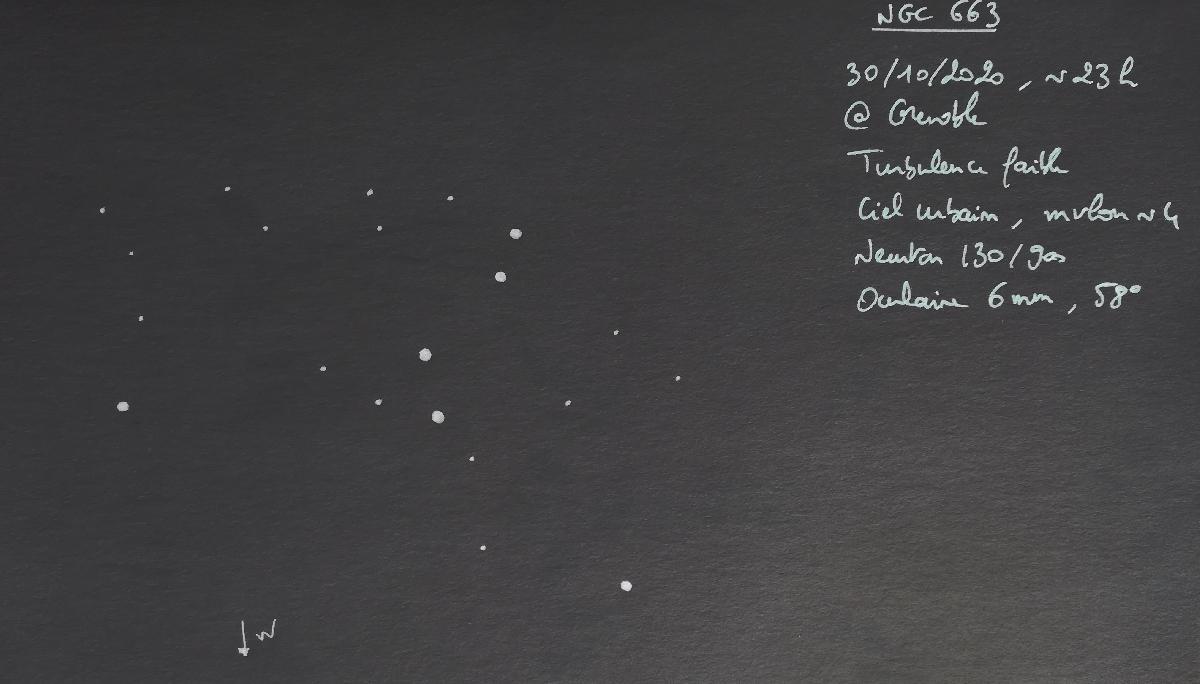 NGC 663
30/10/2020, ~23h
@ Grenoble
Turbulence faible
Ciel urbain, mvlon ~4
Newton 130/900
Oculaire 6mm, 58°
W